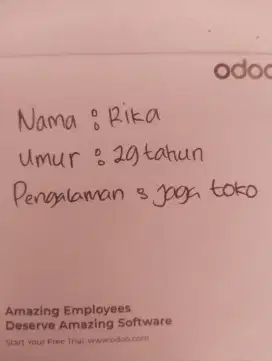 odoo
Nama : Rika
Umur : 29 tahun
Pengalaman : Jaga toko
Amazing Employees
Deserve Amazing Software
Start Your Free Trial www.odoo.com